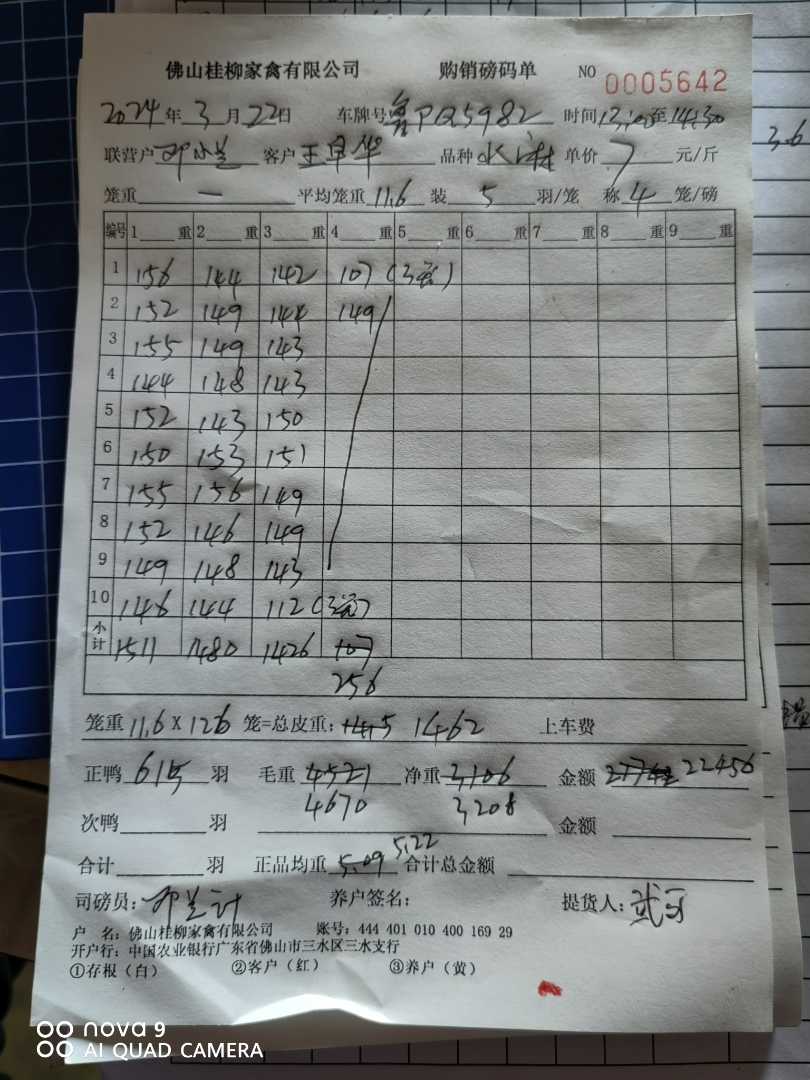 佛山桂柳家禽有限公司 购销磅码单 NO 0005642
2024年3月22日 车牌号鲁PQ5982 时间 至14:30
联营户 邓小兰 客户 王 华 品种 水 单价 7 元/斤
笼重 一 平均笼重 11.6 装 5 羽/笼 称 4 笼/磅
编号 1 重 2 重 3 重 4 重 5 重 6 重 7 重 8 重 9 重
1 156 144 142 107 (3笼)
2 152 149 144 149
3 155 149 143
4 144 148 143
5 152 143 150
6 150 153 151
7 155 156 149
8 152 146 149
9 149 148 143
10 146 144 112 (3笼)
小计 1511 1480 1426 107
256
笼重 11.6 X 126 笼=总皮重: 1445 1462 上车费
正鸭 615 羽 毛重 4521 净重 3106 金额 22456
4670 3208
次鸭 羽 金额
合计 羽 正品均重 5.09 5.22 合计总金额
司磅员: 邓兰计 养户签名: 提货人:
户 名: 佛山桂柳家禽有限公司 账号: 444 401 010 400 169 29
开户行: 中国农业银行广东省佛山市三水区三水支行
①存根（白） ②客户（红） ③养户（黄）
3.6
nova 9
AI QUAD CAMERA